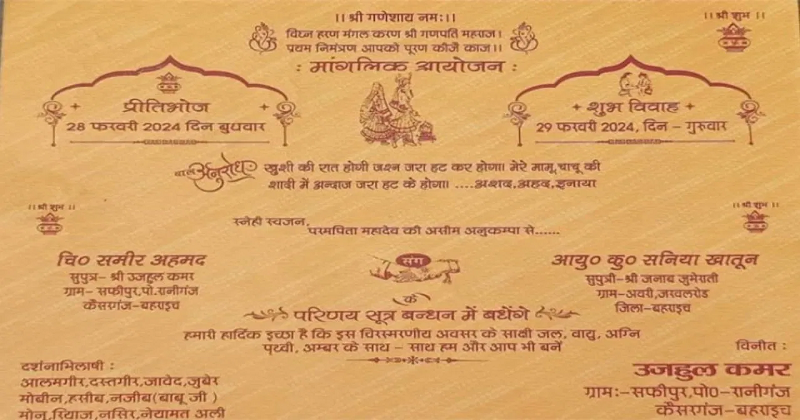 ।। श्री गणेशाय नमः ।।
।। श्री शुभ ।।
विघ्न हरण मंगल करण श्री गणपति महराज।
प्रथम निमंत्रण आपको पूरण कीजै काज।।
: मांगलिक आयोजन :
प्रीतिभोज
28 फरवरी 2024 दिन बुधवार
शुभ विवाह
29 फरवरी 2024, दिन – गुरुवार
बाल अनुरोध
खुशी की रात होगी जश्न जरा हट कर होगा। मेरे मामू,चाचू की
शादी में अन्दाज जरा हट के होगा। ....अशद,अहद,इनाया
।। श्री शुभ ।।
।। श्री शुभ ।।
स्नेही स्वजन,
परमपिता महादेव की असीम अनुकम्पा से......
चि० समीर अहमद
सुपुत्र- श्री उजहुल कमर
ग्राम- सफीपुर,पो.रानीगंज
कैसरगंज-बहराइच
संग
आयु० कु० सनिया खातून
सुपुत्री-श्री जनाब जुमेराती
ग्राम-अवरी,जरवलरोड
जिला-बहराइच
के
परिणय सूत्र बन्धन में बधेंगे
हमारी हार्दिक इच्छा है कि इस विस्मरणीय अवसर के साक्षी जल, वायु, अग्नि
पृथ्वी, अम्बर के साथ – साथ हम और आप भी बनें
दर्शनाभिलाषी :
आलमगीर,दस्तगीर,जावेद,जुबेर
मोबीन,हसीब,नजीब(बाबू जी )
मोनू,रियाज,नसिर,नेयामत अली
विनीत :
उजहुल कमर
ग्राम:-सफीपुर,पो०-रानीगंज
कैसरगंज-बहराइच